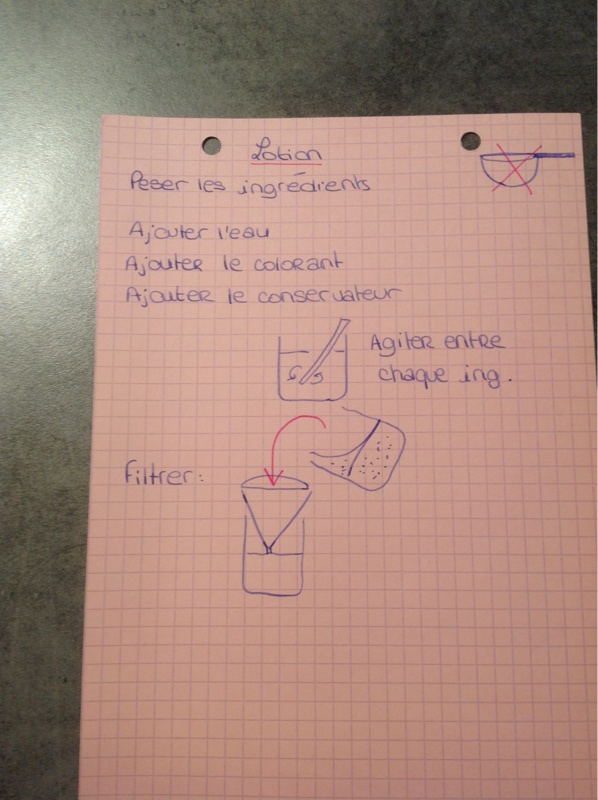 Lotion
Peser les ingrédients
Ajouter l'eau
Ajouter le colorant
Ajouter le conservateur
Agiter entre
chaque ing.
Filtrer: